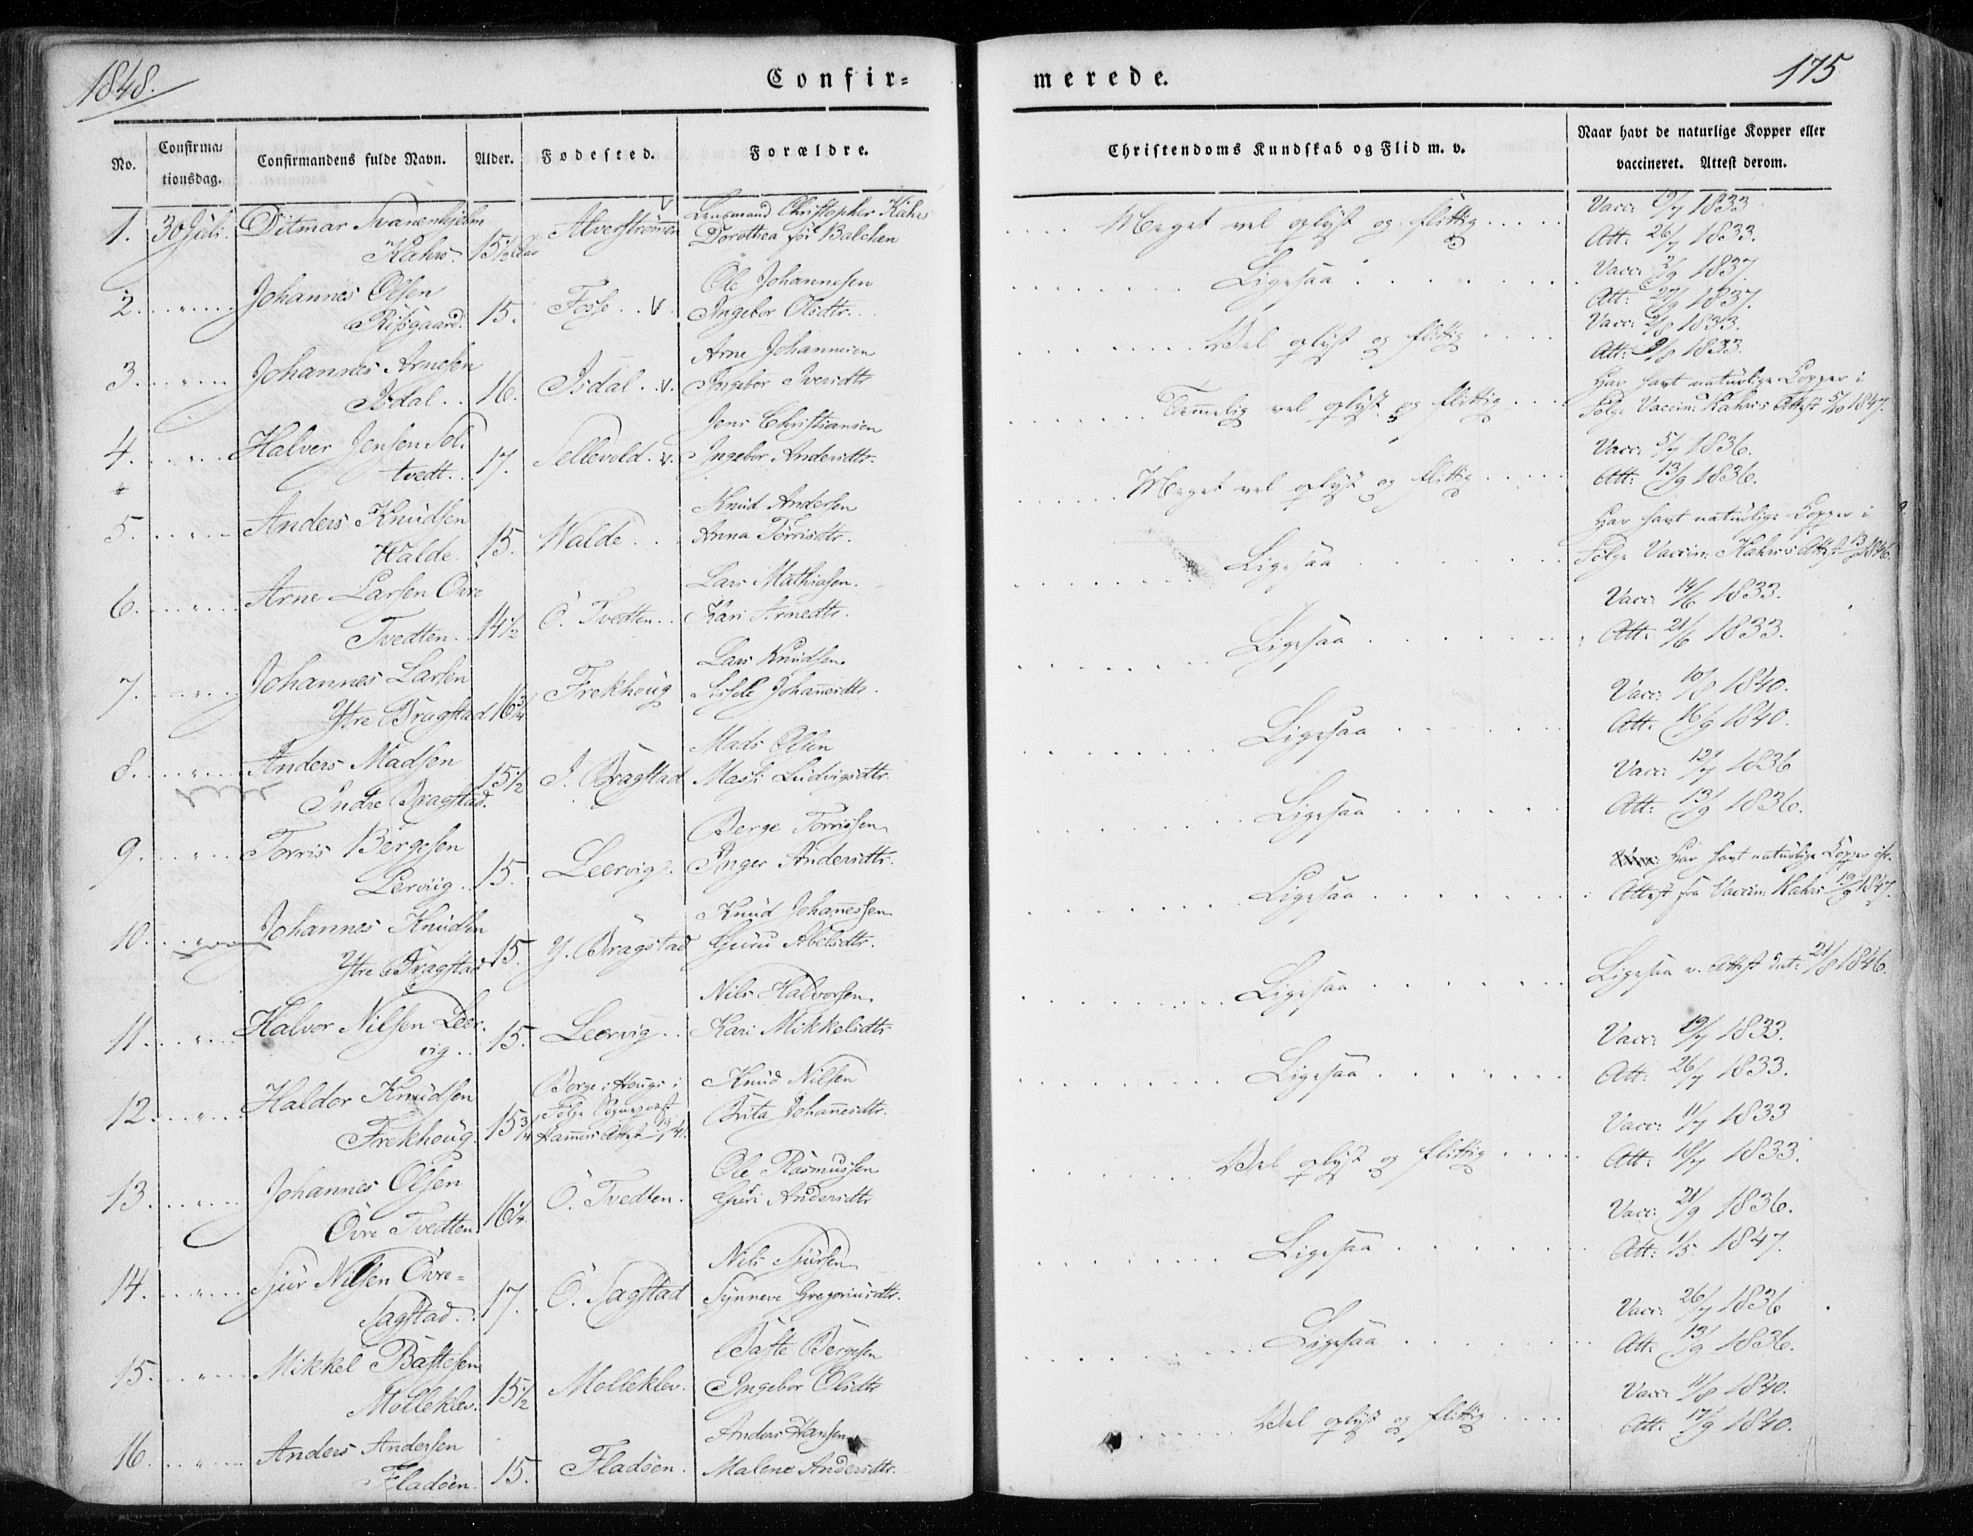 1848.
Confir=
merede.
175
No.
Confirma=
tionsdag.
Confirmandens fulde Navn.
Alder.
Fødested.
Forældre.
Christendoms Kundskab og Flid m. v.
Naar havt de naturlige Kopper eller
vaccineret. Attest derom.
1. 30 Juli. Ditmar Svanenhjelm Alverströmen Lensmand Christopher Kahrs
Kahrs. 15½ Dorothea Balchen
Meget vel oplyst og flittig
Vacc: 19/7 1833
Att: 26/7 1833.
2. Johannes Olsen Fosse v. Ole Johannesen
Risgaard. 15. Ingebor Olsdtr.
Ligesaa
Vacc: 1837.
Att: 27/9 1837.
3. Johannes Arnesen Arne Johannesen
Isdal. 16. Isdal. v. Ingebor Iversdtr
Vel oplyst og flittig
Vacc: 2/8 1833.
Att: 9/8 1833.
4. Halver Jensen Sol: Jens Christiansen
tvedt. 17. Sellevold. v. Ingebor Andersdtr.
Temmelig vel oplyst og flittig
Har havt naturlige Kopper i
Følge Vaccin: Kahrs Attest 5/10 1847.
5. Anders Knudsen Knud Andersen
Walde. 15. Walde. Anna Torrisdtr.
Meget vel oplyst og flittig
Vacc: 5/7 1836.
Att: 13/9 1836.
6. Arne Larsen Ovre Lars Mathiasen.
Tvedten. 14½ Ö. Tvedten. Kari Arnedtr.
Ligesaa
Har havt naturlige Kopper i
Følge Vaccin: Kahrs Attest 1846.
7. Johannes Larsen Frekhoug Lars Knudsen
Ytre Bragstad 16¾ Johannesdtr.
Ligesaa
Vacc: 14/6 1833.
Att: 21/6 1833.
8. Anders Madsen Mads Olsen
Indre Bragstad. 15½ I. Bragstad Ludvigsdtr.
Ligesaa
Vacc: 10/8 1840.
Att: 16/9 1840.
9. Torris Bergesen Berge Torrissen
Lervüg. 15. Leervig. Inger Andersdtr.
Ligesaa
Vacc: 12/7 1836
Att: 13/9 1836.
10. Johannes Knudsen Knud Johannessen
Ytre Bragstad 15. Y. Bragstad Guru Abelsdtr.
Ligesaa
Har havt naturlige Kopper
Attest fra Vaccin. Kahrs 19/9 1847.
11. Halvor Nilsen Leer: Nils Halvorsen
vig 15. Leervig Kari Mikkelsdtr.
Ligesaa
Ligesaa v. Attest dat: 21/8 1846.
12. Haldor Knudsen Borge i Hougs i Knud Nilsen
Frekhoug. 15¾ Følge Attest Brita Johannesdtr.
Ligesaa
Vacc: 19/7 1833.
Att: 26/7 1833.
13. Johannes Olsen Ole Rasmussen
Övre Tvedten 16¼ Ö. Tvedten. Guri Andersdtr
Vel oplyst og flittig
Vacc: 11/7 1833
Att: 18/7 1833.
14. Sjur Nilsen Övre= Nils Sjursen
Sagstad. 17. Ö. Sagstad Synneve Gregoriusdtr.
Ligesaa
Vacc: 21/9 1836.
Att: 1/5 1847.
15. Mikkel Bastesen Baste Bergesen
Molleklev. 15½ Molleklev. Ingebor Olsdtr
Ligesaa
Vacc: 26/7 1836
Att: 13/9 1836.
16. Anders Andersen Anders Hansen
Fladöen. 15. Fladöen. Malene Andersdtr.
Vel oplyst og flittig
Vacc: 11/8 1840.
Att: 17/9 1840.